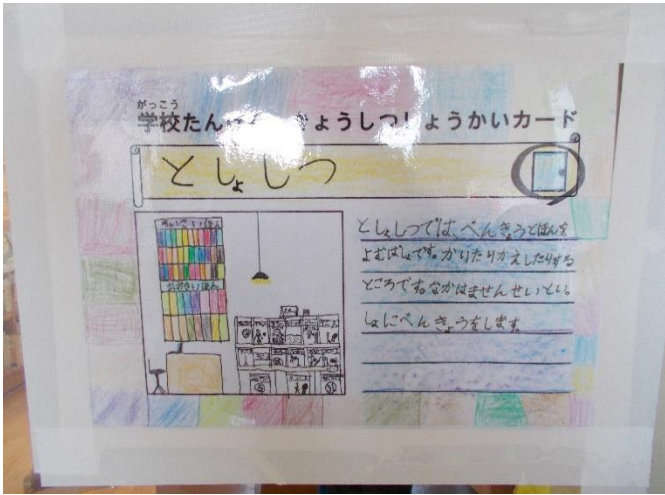 がっこう
学校たんけん きょうしつしょうかいカード
としょしつ
としょしつでは、べんきょうとほんを
よむばしょです。かりたりかえしたりする
ところです。なかはませんせいといっ
しょにべんきょうをします。
おおきいほん